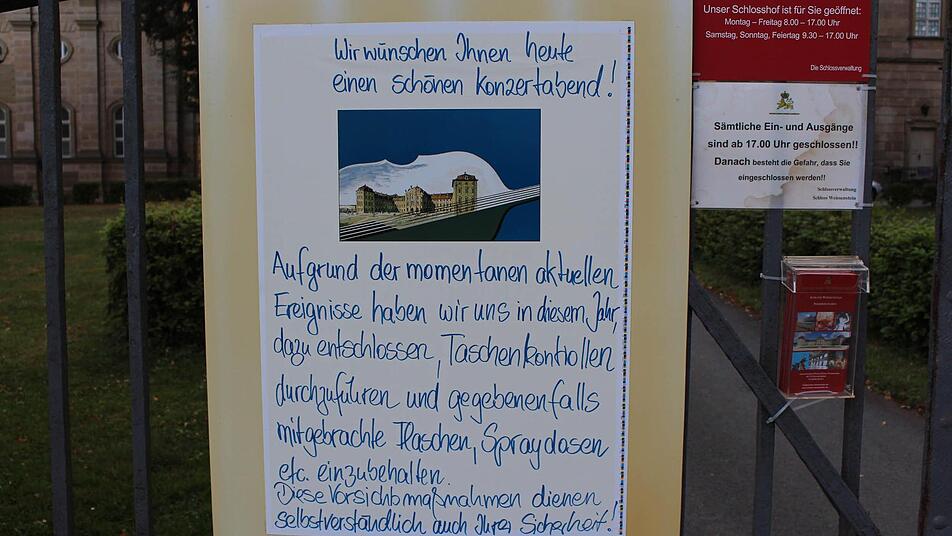 Wir wünschen Ihnen heute
einen schönen Konzertabend!
Aufgrund der momentanen aktuellen
Ereignisse haben wir uns in diesem Jahr,
dazu entschlossen, Taschenkontrollen
durchzuführen und gegebenenfalls
mitgebrachte Flaschen, Spraydosen
etc. einzubehalten.
Diese Vorsichtsmaßnahmen dienen
selbstverständlich auch Ihrer Sicherheit!
Unser Schlosshof ist für Sie geöffnet:
Montag – Freitag 8.00 – 17.00 Uhr
Samstag, Sonntag, Feiertag 9.30 – 17.00 Uhr
Die Schlossverwaltung
Sämtliche Ein- und Ausgänge
sind ab 17.00 Uhr geschlossen!!
Danach besteht die Gefahr, dass Sie
eingeschlossen werden!!
Schlossverwaltung
Schloss Weissenstein